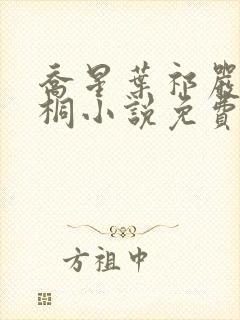 喬星葉祁嚴
桐小說免費
方祖中